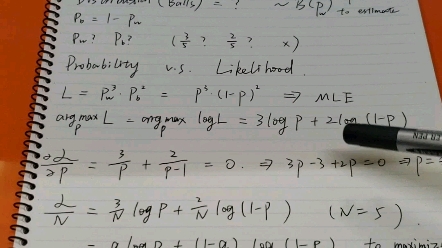 Distribution (Balls) = ? ~ B(Pw) to estimate
Pb = 1 - Pw
Pw? Pb? ( 3/5 ? 2/5 ? x )
Probability v.s. Likelihood.
L = Pw³ · Pb² = P³ · (1-P)² ⇒ MLE
argmax_p L = argmax_p log L = 3 log P + 2 log (1-P)
∂L/∂P = 3/P + 2/(P-1) = 0. ⇒ 3P-3+2P=0 ⇒ P=
L/N = 3/N log P + 2/N log (1-P) (N=5)
= a log P + (1-a) log (1-P) to maximiz